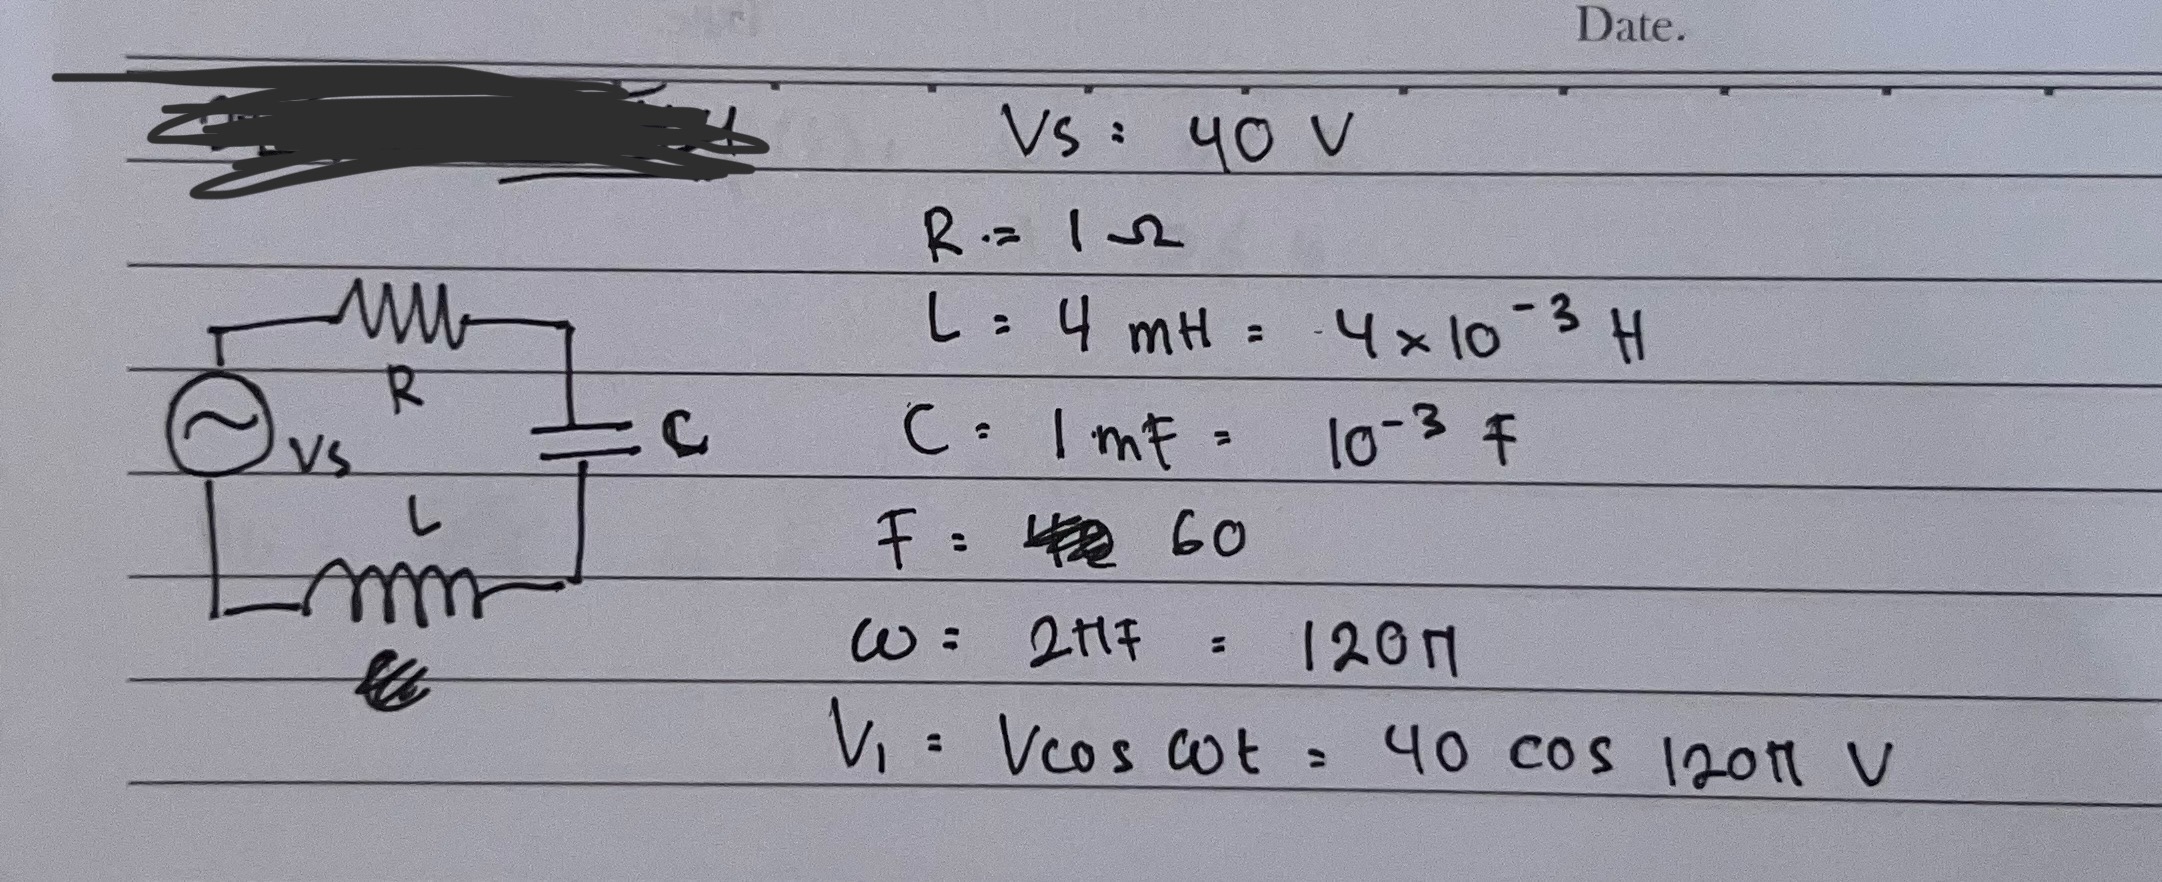 Date.
Vs : 40 V
R = 1 Ω
L = 4 mH = 4 × 10⁻³ H
C = 1 mF = 10⁻³ F
R
C
Vs
L
F = 60
ω = 2πF = 120π
V₁ = V cos ωt = 40 cos 120π V